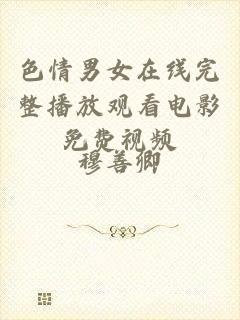 色情男女在线完
整播放观看电影
免费视频
穆善卿